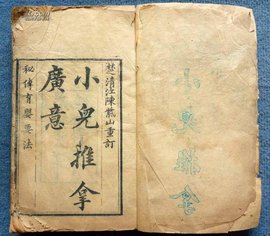 楚清江陳紫山重訂
小兒推拿
廣意
秘傳育嬰要法
小兒推拿